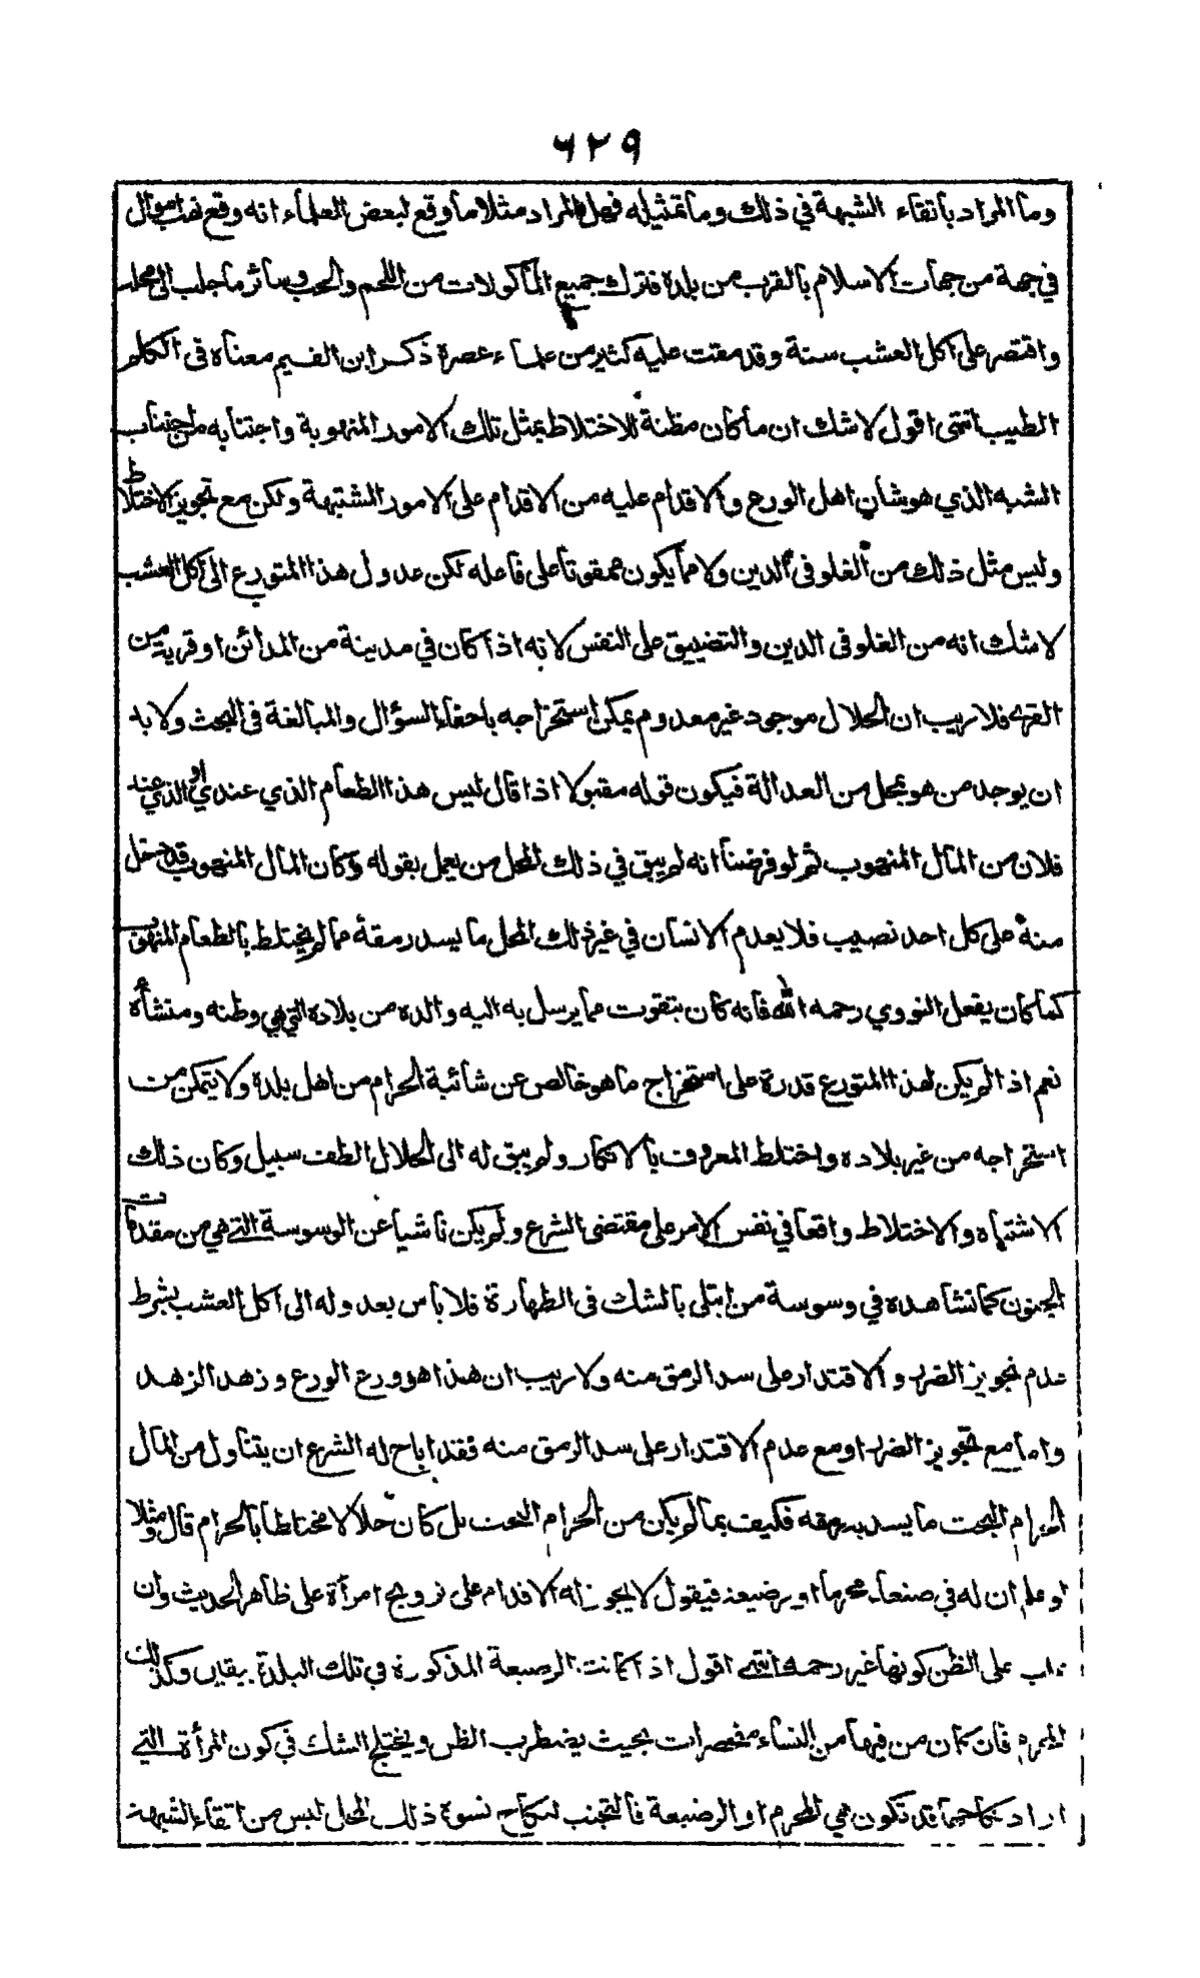 ٦٢٩
وما المراد باتقاء الشبهة في ذلك وما تمثيله فهل المراد مثلا ما وقع لبعض العلماء انه وقع نهب اموال
في جهة من جهات الاسلام بالقرب من بلده فترك جميع المأكولات من اللحم والحب وسائر ما جلب الى محله
واقتصر على اكل العشب سنة وقد مقت عليه كثير من علماء عصره ذكر ابن القيم معناه في الكلم
الطيب انتهى اقول لا شك ان ما كان مظنة للاختلاط بمثل تلك الامور المنهوبة واجتنابه من اجتناب
الشبه الذي هو شان اهل الورع والاقدام عليه من الاقدام على الامور المشتبهة ولكن مع تجويز الاختلاط
وليس مثل ذلك من الغلو في الدين ولا مما يكون ممقوتا على فاعله لكن عدول هذا المتورع الى اكل العشب
لا شك انه من الغلو في الدين والتضييق على النفس لانه اذا كان في مدينة من المدائن او قرية من
القرى فلا ريب ان الحلال موجود غير معدوم يمكن استخراجه باحفاء السؤال والمبالغة في البحث ولا بد
ان يوجد من هو بمحل من العدالة فيكون قوله مقبولا اذا قال ليس هذا الطعام الذي عندي او الذي عند
فلان من المال المنهوب ثم لو فرضنا انه لم يبق في ذلك المحل من يعمل بقوله وكان المال المنهوب قد دخل
منه على كل احد نصيب فلا يعدم الانسان في غير ذلك المحل ما يسد رمقة مما لم يختلط بالطعام المنهوب
كما كان يفعل النووي رحمه الله فانه كان يتقوت مما يرسل به اليه والده من بلاده التي هي وطنه ومنشأه
نعم اذا لم يكن لهذا المتورع قدرة على استخراج ما هو خالص عن شائبة الحرام من اهل بلده ولا يتمكن من
استخراجه من غير بلاده واختلط المعروف بالانكار ولم يبق له الى الحلال الطلق سبيل وكان ذلك
الاشتباه والاختلاط واقعا في نفس الامر على مقتضى الشرع ولم يكن ناشيا عن الوسوسة التي هي من مقدمات
الجنون كما نشاهده في وسوسة من ابتلى بالشك في الطهارة فلا باس بعدوله الى اكل العشب بشرط
عدم تجويز الضرر والاقتدار على سد الرمق منه ولا ريب ان هذا هو ورع الورع وزهد الزهد
واما مع تجويز الضرر او مع عدم الاقتدار على سد الرمق منه فقد اباح له الشرع ان يتناول من المال
الحرام البحت ما يسد به رمقه فكيف بما لم يكن من الحرام البحت بل كان حلالا مختلطا بالحرام قال ومثلا
لو علم ان له في صنعاء محرما او رضيعة فيقول لا يجوز له الاقدام على تزويج امرأة على ظاهر الحديث وان
غاب على الظن كونها غير رحمه انتهى اقول اذا كانت الرضيعة المذكورة في تلك البلدة بيقين وكذلك
المحرم فان كان من فيها من النساء منحصرات بحيث يضطرب الظن ويختلج الشك في كون المرأة التي
اراد نكاحها قد تكون هي المحرم او الرضيعة فالتجنب لنكاح نسوة ذلك المحل ليس من اتقاء الشبهة